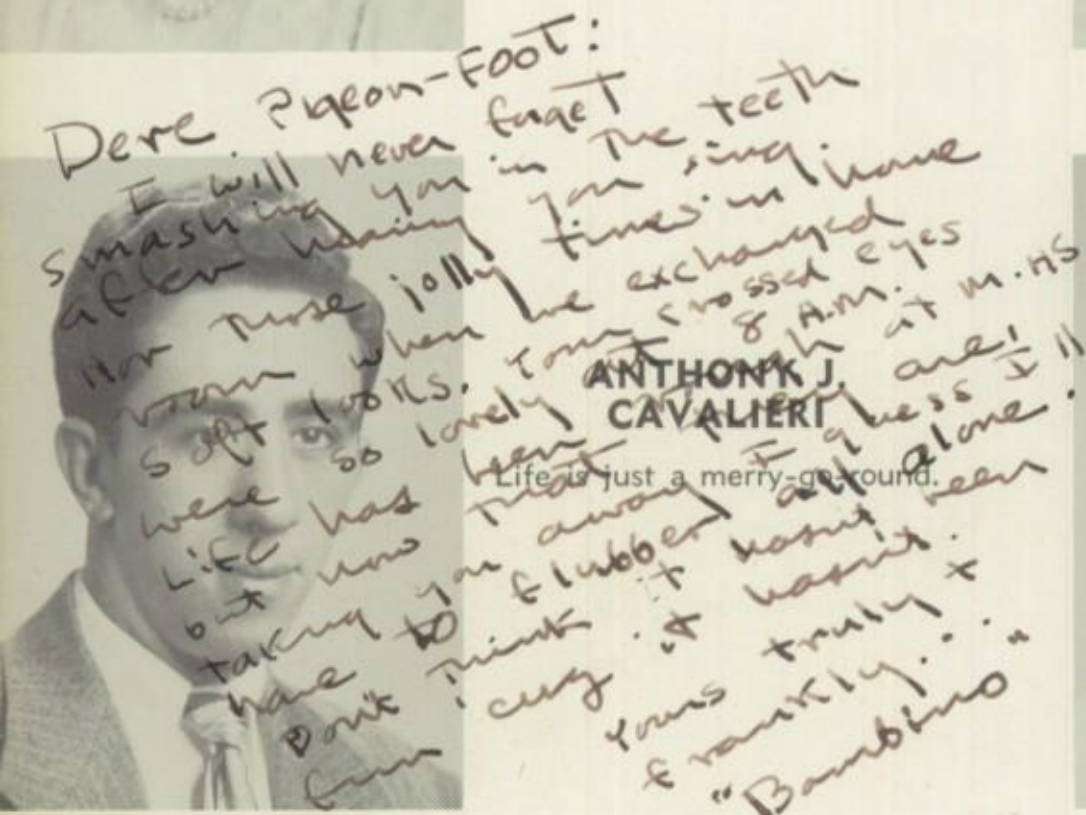 Dere Pigeon-Foot:
I will never forget
smashing you in the teeth
after hearing you sing.
Nor those jolly times in home
room when we exchanged
soft looks. Your crossed eyes
were so lovely at 8 A.M.
Life has been rough at M.HS
but now that they are
taking you away I guess I'll
have to flubber all alone.
Don't think it hasn't been
fun cuz it hasn't.
Yours truly +
frankly...
"Bambino"
ANTHONY J.
CAVALIERI
Life is just a merry-go-round.